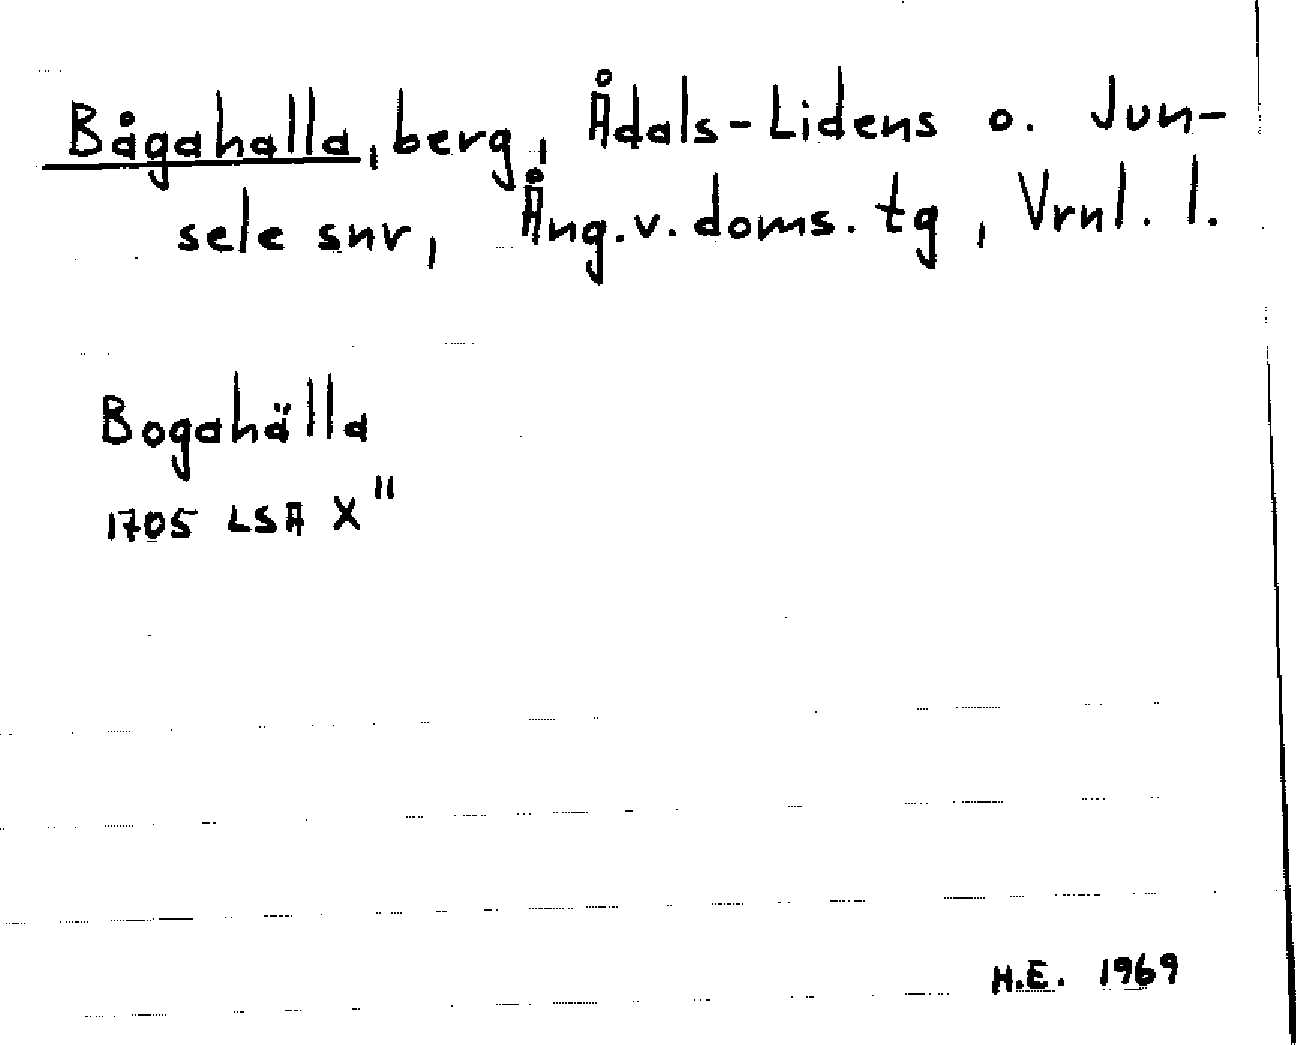 Bågahalla, berg, Ådals-Lidens o. Jun-
sele snr, Ång. v. doms. tg, Vrnl. l.
Bogahälla
1705 LSA X"
H.E. 1969